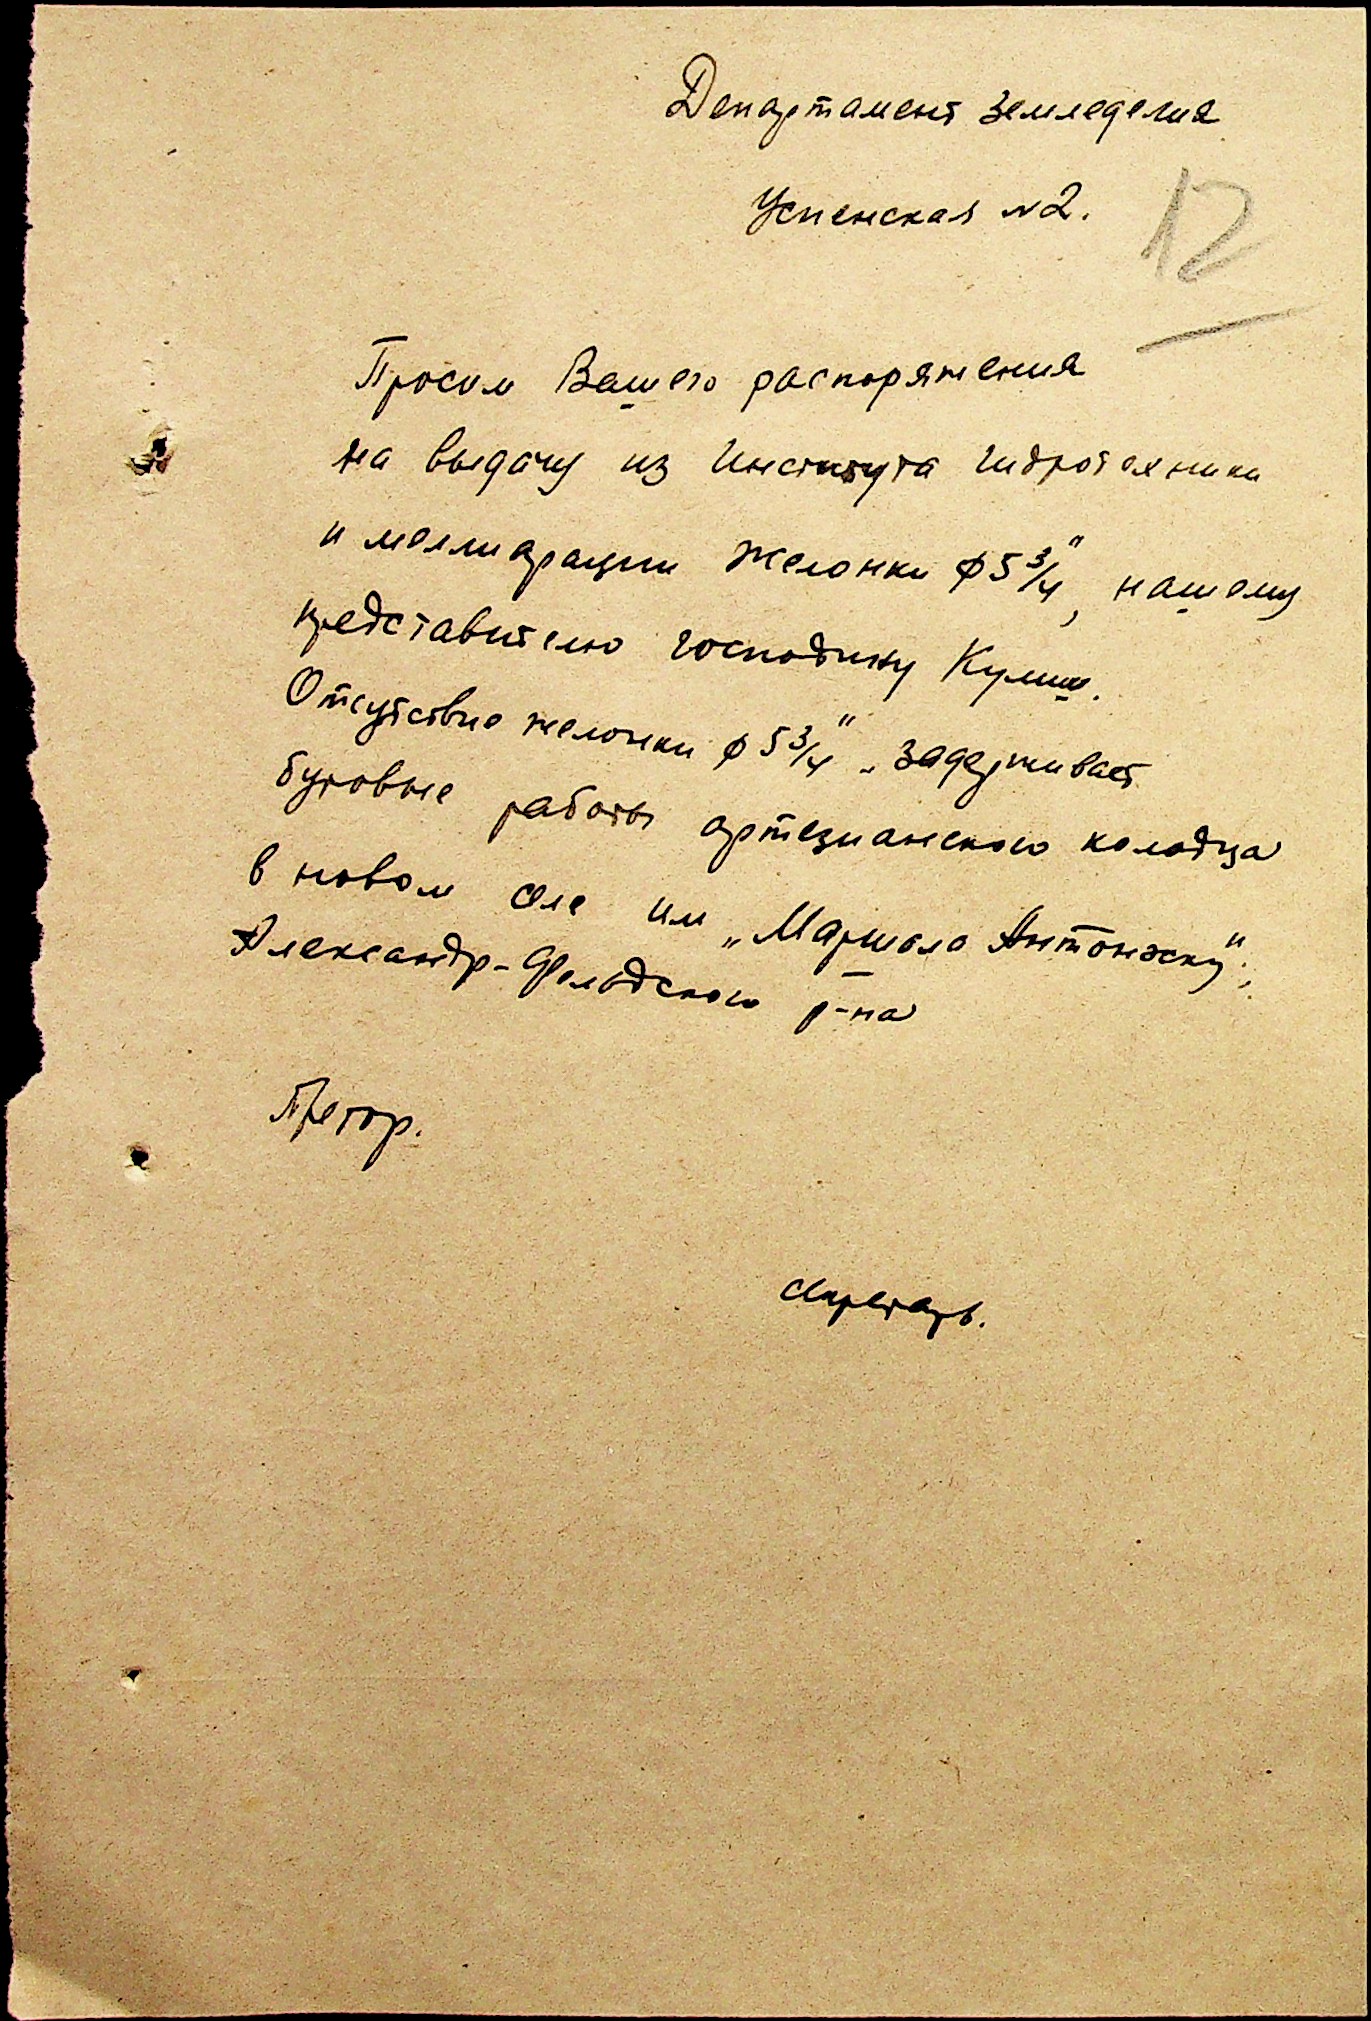 Департамент Земледелия
Успенская №2.
12
Просим Вашего распоряжения
на выдачу из Института Гидротехники
и меллиарации желонки ϕ 5 3/4", нашему
представителю господину Кулиш.
Отсутствие желонки ϕ 5 3/4" задерживает
буровые работы артезианского колодца
в новом селе им „Маршала Антонэску",
Александр-Фельдского р-на
Претор.
Секретарь.